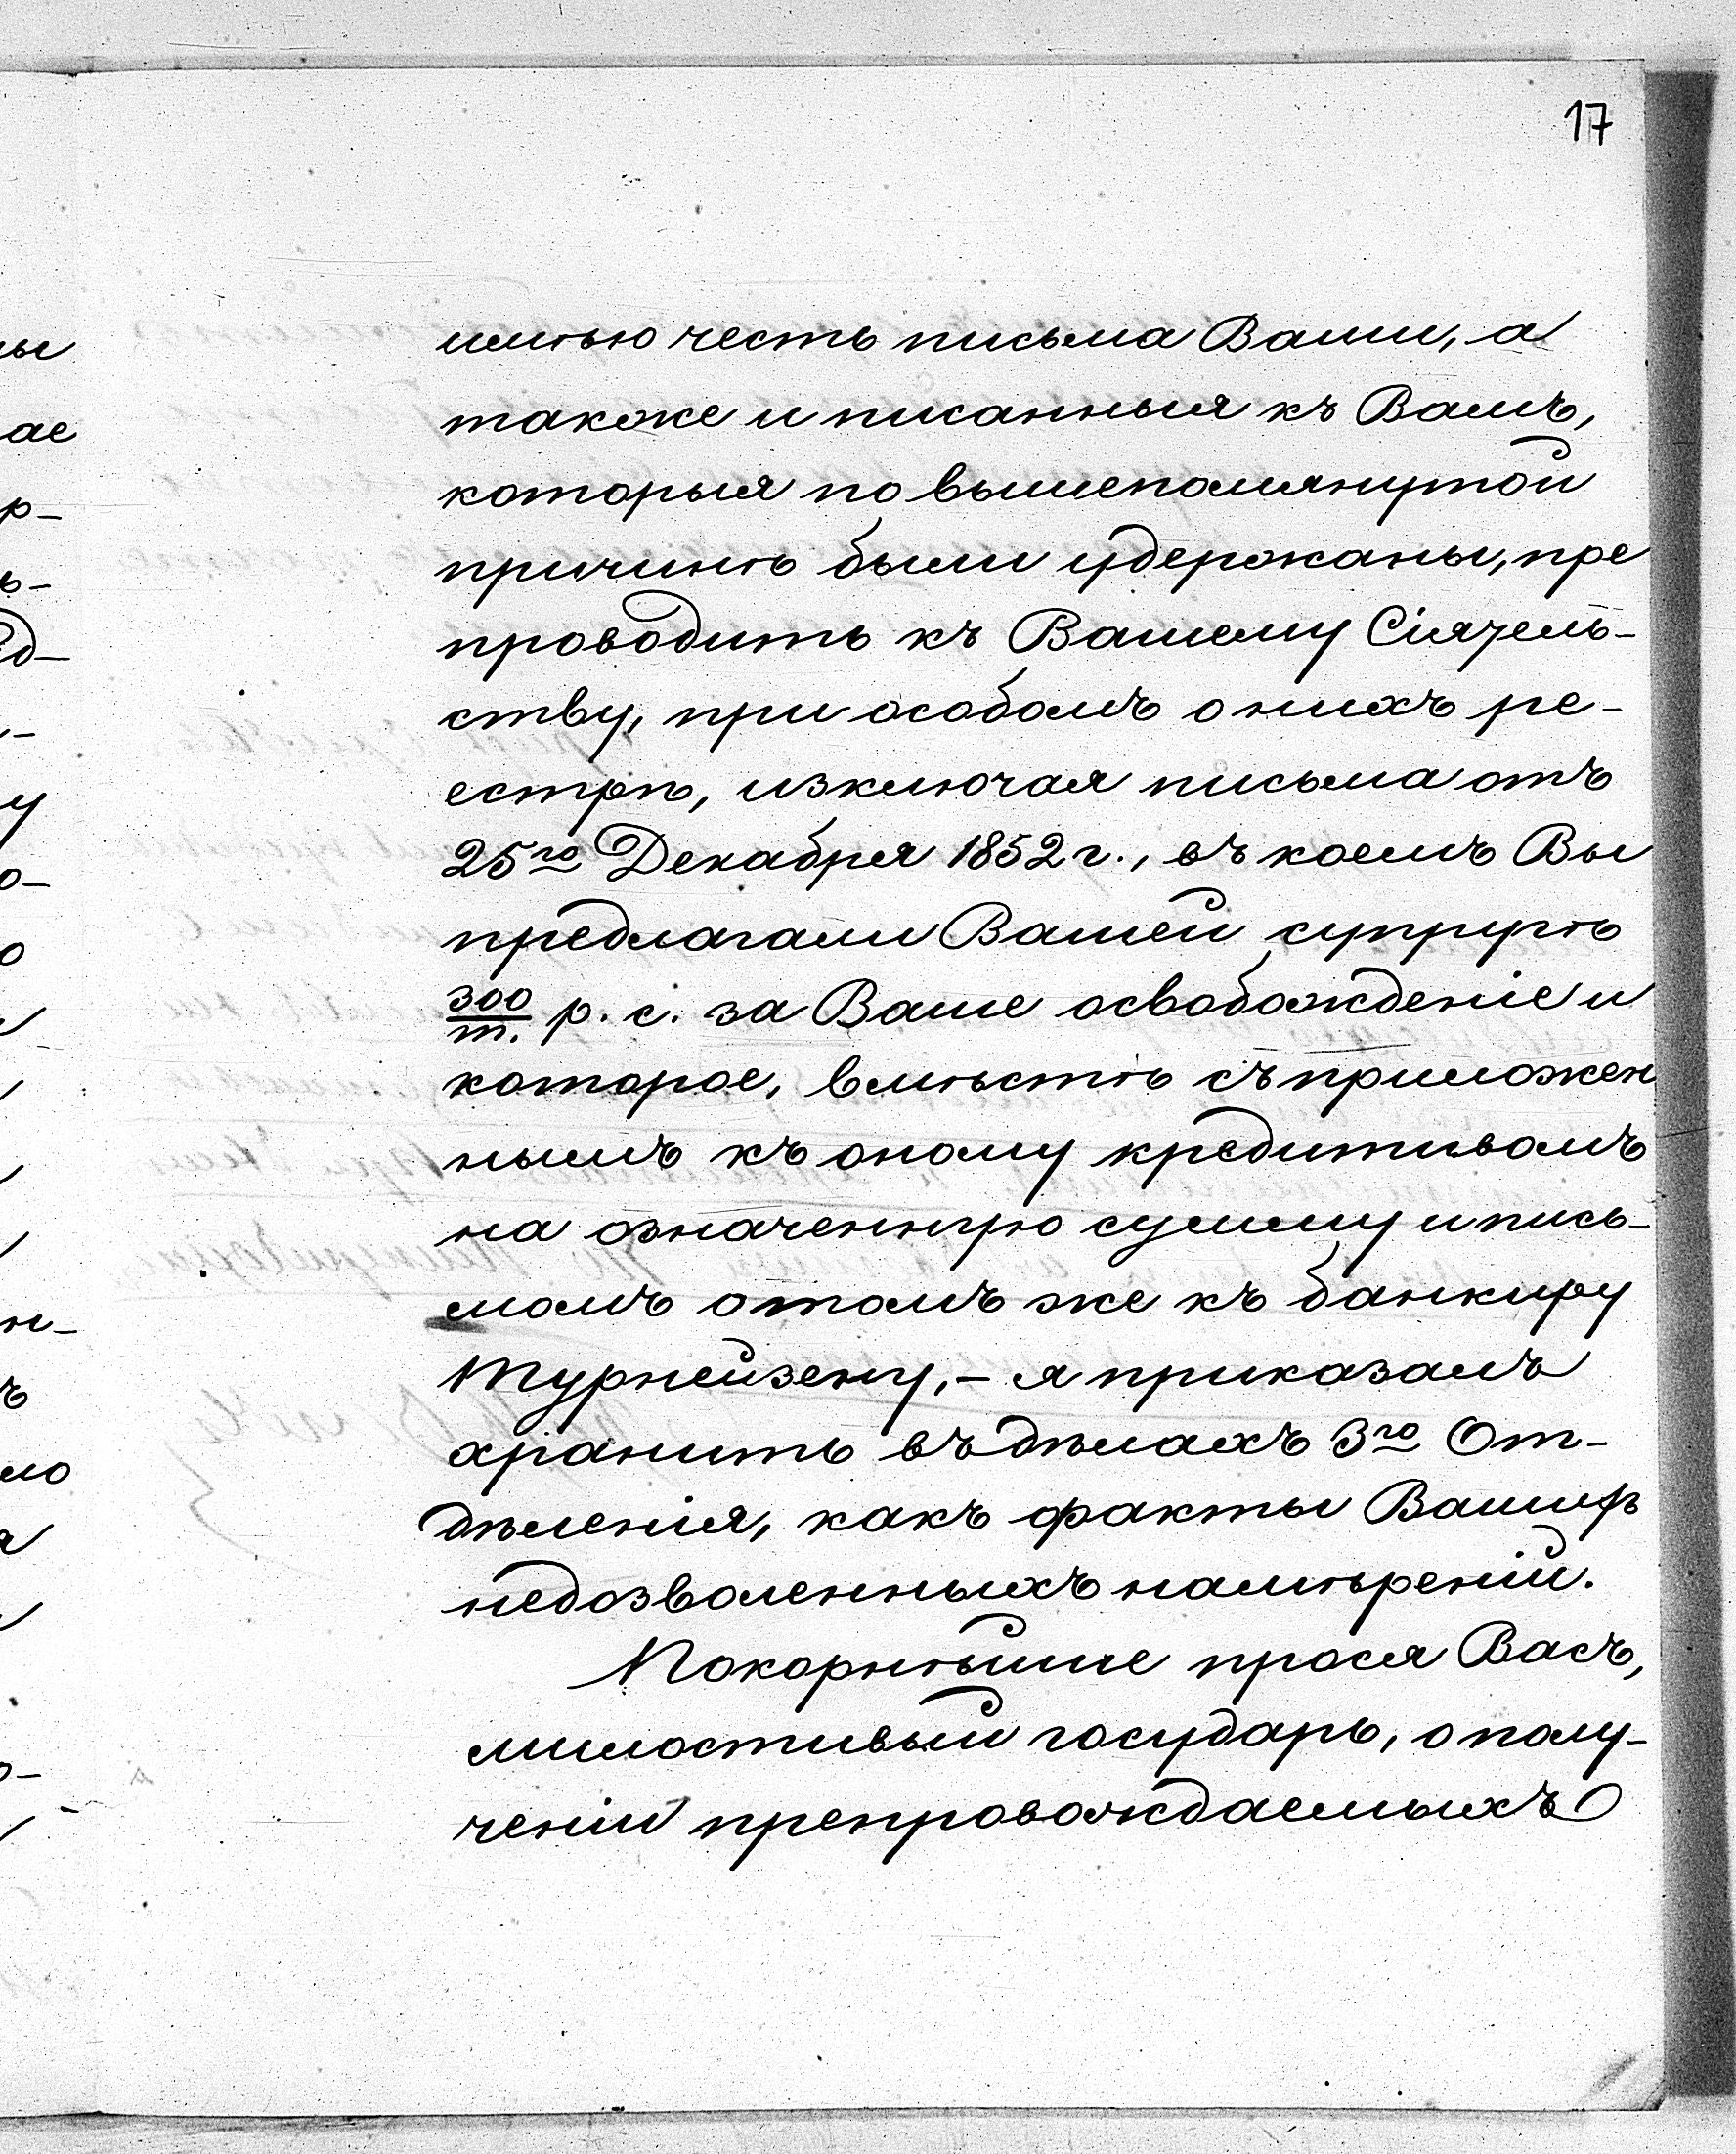 17
имѣю честь письма Ваши, а
также и писанныя къ Вамъ,
которыя по вышепомянутой
причинѣ были удержаны, пре
проводить къ Вашему Сіятель-
ству, при особомъ о нихъ ре-
естрѣ, изключая письма отъ
25го Декабря 1852 г., въ коемъ Вы
предлагали Вашей супругѣ
300/т. р. с. за Ваше освобожденіе и
которое, вмѣстѣ съ приложен
нымъ къ оному кредитивомъ
на означенную сумму и пись-
момъ о томъ же къ банкиру
Турнейзену, - я приказалъ
хранить въ дѣлахъ 3го От-
дѣленія, какъ факты Вашихъ
недозволенныхъ намѣреній.
Покорнѣйше прося Васъ,
милостивый государь, о полу-
ченіи препровождаемыхъ